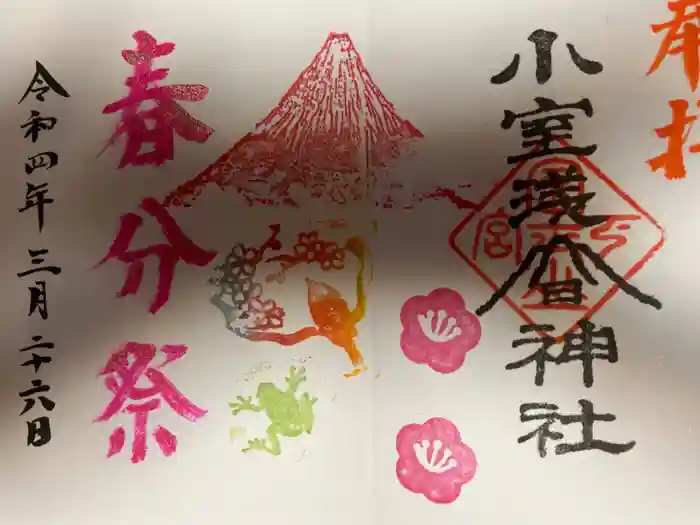 奉拝
小室浅間神社
春分祭
令和四年三月二十六日